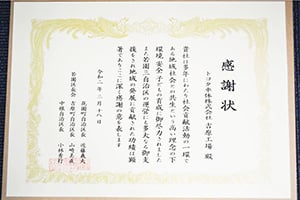 感謝状
トヨタ車体株式会社
吉原工場 殿
貴社は多年にわたり社会貢献活動の一環で
ある地域社会との共生という高い理念の下
環境 安全 子どもの育成に御尽力されました
また若園三自治区の運営にも多大なる御支
援をされ地域の発展に貢献された功績は顕
著でありここに深く感謝の意を表します
令和二年 月十八日
若園区長会
吉原町自治区長
中根自治区長 小林秀行